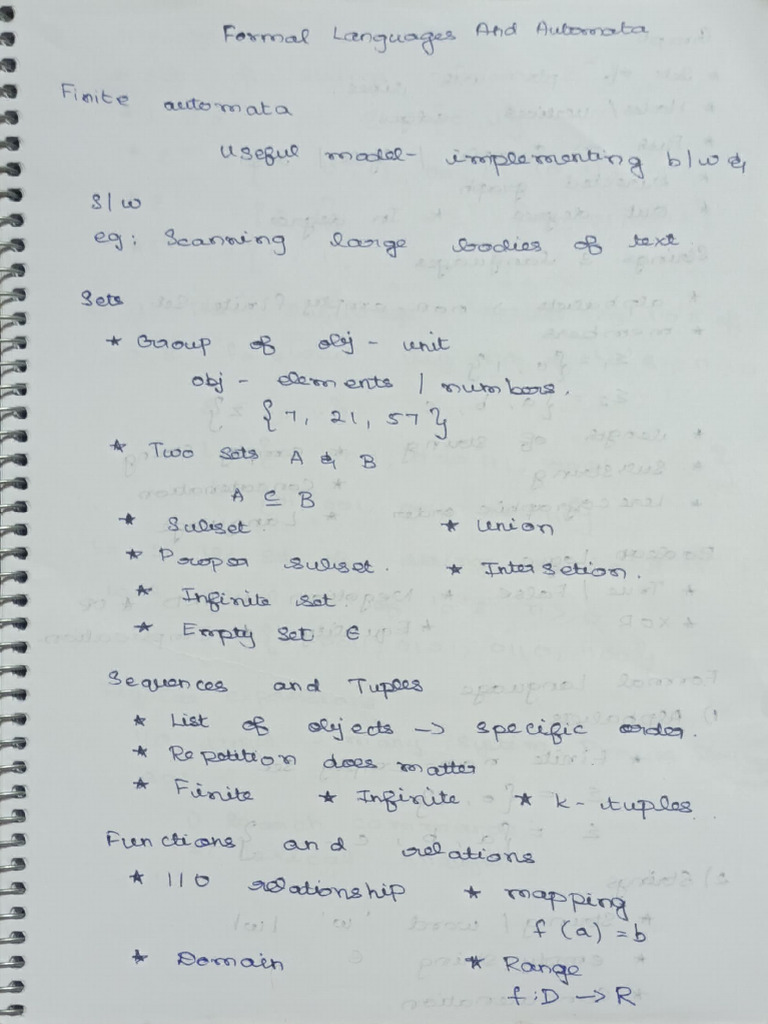 Formal Languages And Automata
Finite automata
Useful model - implementing h/w &
S/w
eg: Scanning large bodies of text
Sets
* Group of obj - unit
obj - elements / numbers.
{7, 21, 57}
* Two sets A & B
A ⊆ B
* Subset * Union
* Proper subset. * Intersetion.
* Infinite set.
* Empty set ∈
Sequences and Tuples
* List of objects → specific order.
* Repetition does matter
* Finite * Infinite * k-tuples
Functions and relations
* I/O relationship * mapping
f(a) = b
* Domain * Range
f: D → R